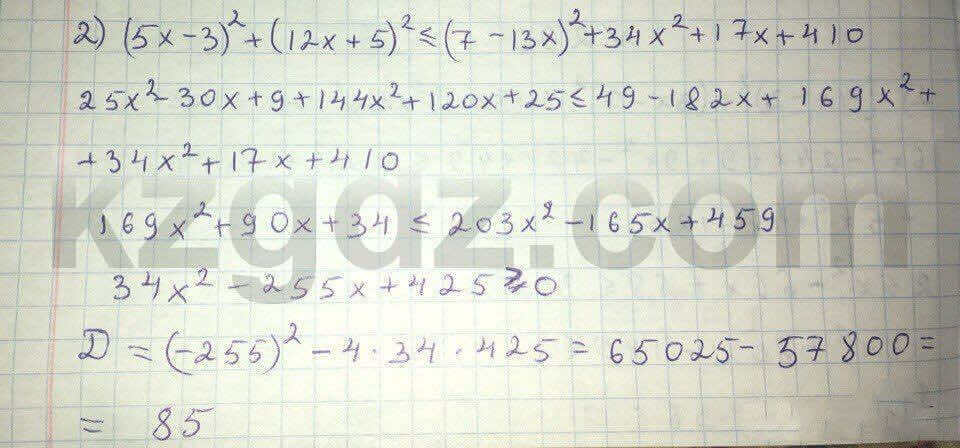 2) (5x-3)²+(12x+5)²≤(7-13x)²+34x²+17x+410
25x²-30x+9+144x²+120x+25≤49-182x+169x²+
+34x²+17x+410
169x²+90x+34≤203x²-165x+459
34x²-255x+425≥0
D=(-255)²-4·34·425=65025-57800=
= 85
kzgdz.com